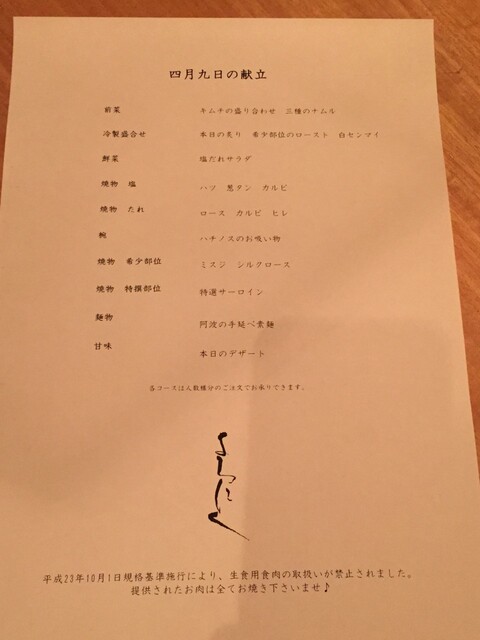 四月九日の献立
前菜 キムチの盛り合わせ 三種のナムル
冷製盛合せ 本日の炙り 希少部位のロースト 白センマイ
鮮菜 塩だれサラダ
焼物 塩 ハツ 葱タン カルビ
焼物 たれ ロース カルビ ヒレ
椀 ハチノスのお吸い物
焼物 希少部位 ミスジ シルクロース
焼物 特撰部位 特選サーロイン
麺物 阿波の手延べ素麺
甘味 本日のデザート
各コースは人数種分のご注文でお承りできます。
よろにく
平成23年10月1日規格基準施行により、生食用食肉の取扱いが禁止されました。
提供されたお肉は全てお焼き下さいませ♪